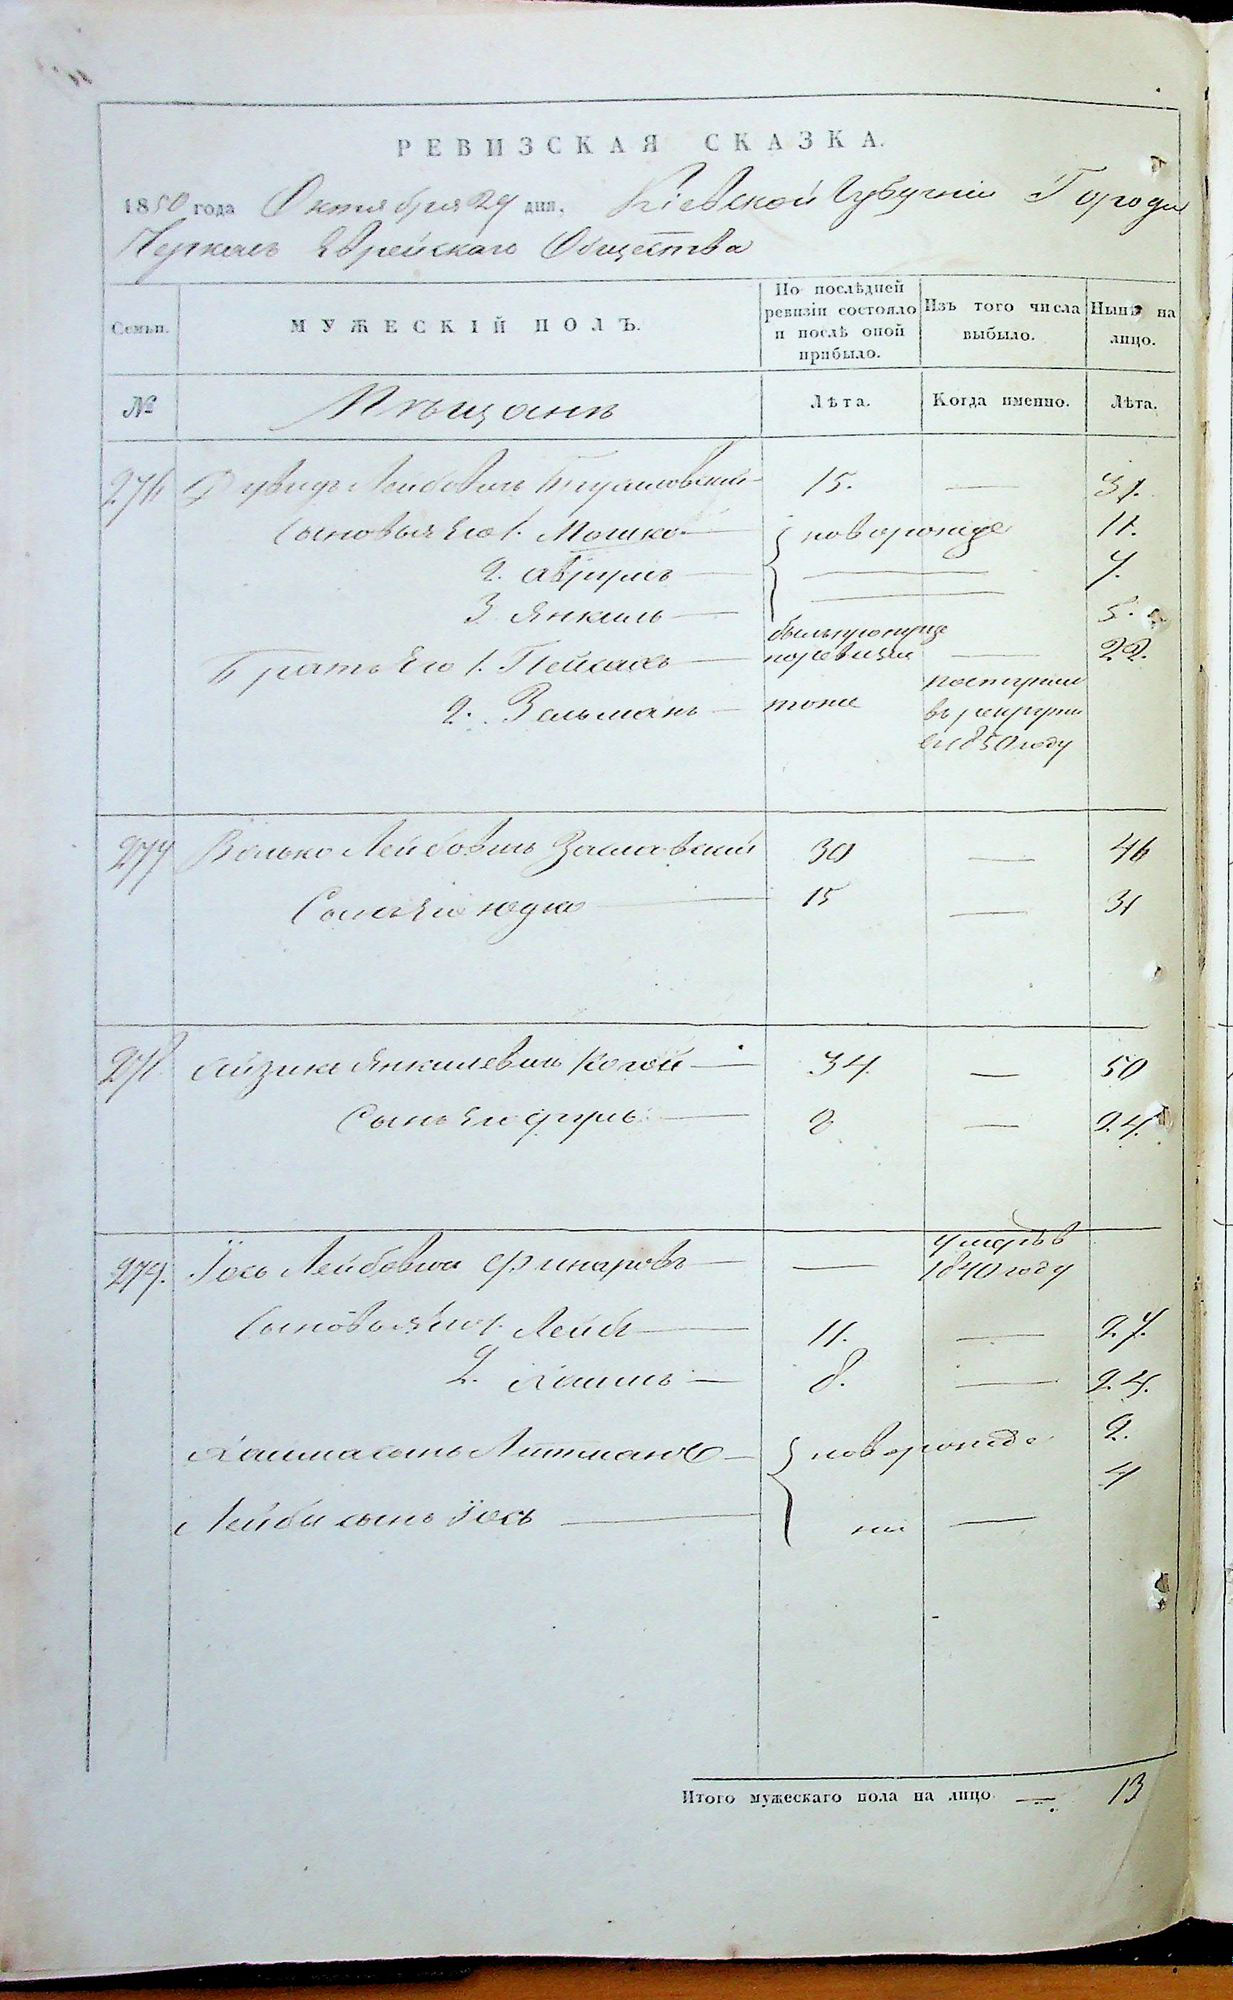 РЕВИЗСКАЯ СКАЗКА.
1850 года Октября 29 дня, Кіевской Губерніи Города
Черкасъ Еврейскаго Общества
Семьи.
МУЖЕСКІЙ ПОЛЪ.
По послѣдней ревизіи состояло и послѣ оной прибыло.
Изъ того числа выбыло.
Нынѣ на лицо.
№
Мѣщанъ
Лѣта.
Когда именно.
Лѣта.
276 Лейбовичъ 15. — 31.
Сыновья его 1. Мошко — новорожде 11.
2. Аврумъ — 7.
3 Янкель — 5.
Братья Его 1. Пейсахъ — ревизіи — 22.
2. Зельманъ — тоже поступилъ
въ рекруты
въ 1850 году
277 Волько Лейбовичъ Заславский 30 — 46
Сынъ его Юдко 15 — 31
278 Айзикъ Янкелевичъ Коган — 34. — 50
Сынъ Его — 8 — 24.
279. Іось Лейбовичъ — — умеръ в
1840 году
Сыновья Его 1. Лейба — 11. — 27.
2. Хаимъ — 8. — 24.
Хаима сынъ — новорожде 2.
Лейбы сынъ Іось — ны — 4
Итого мужескаго пола на лицо — 13